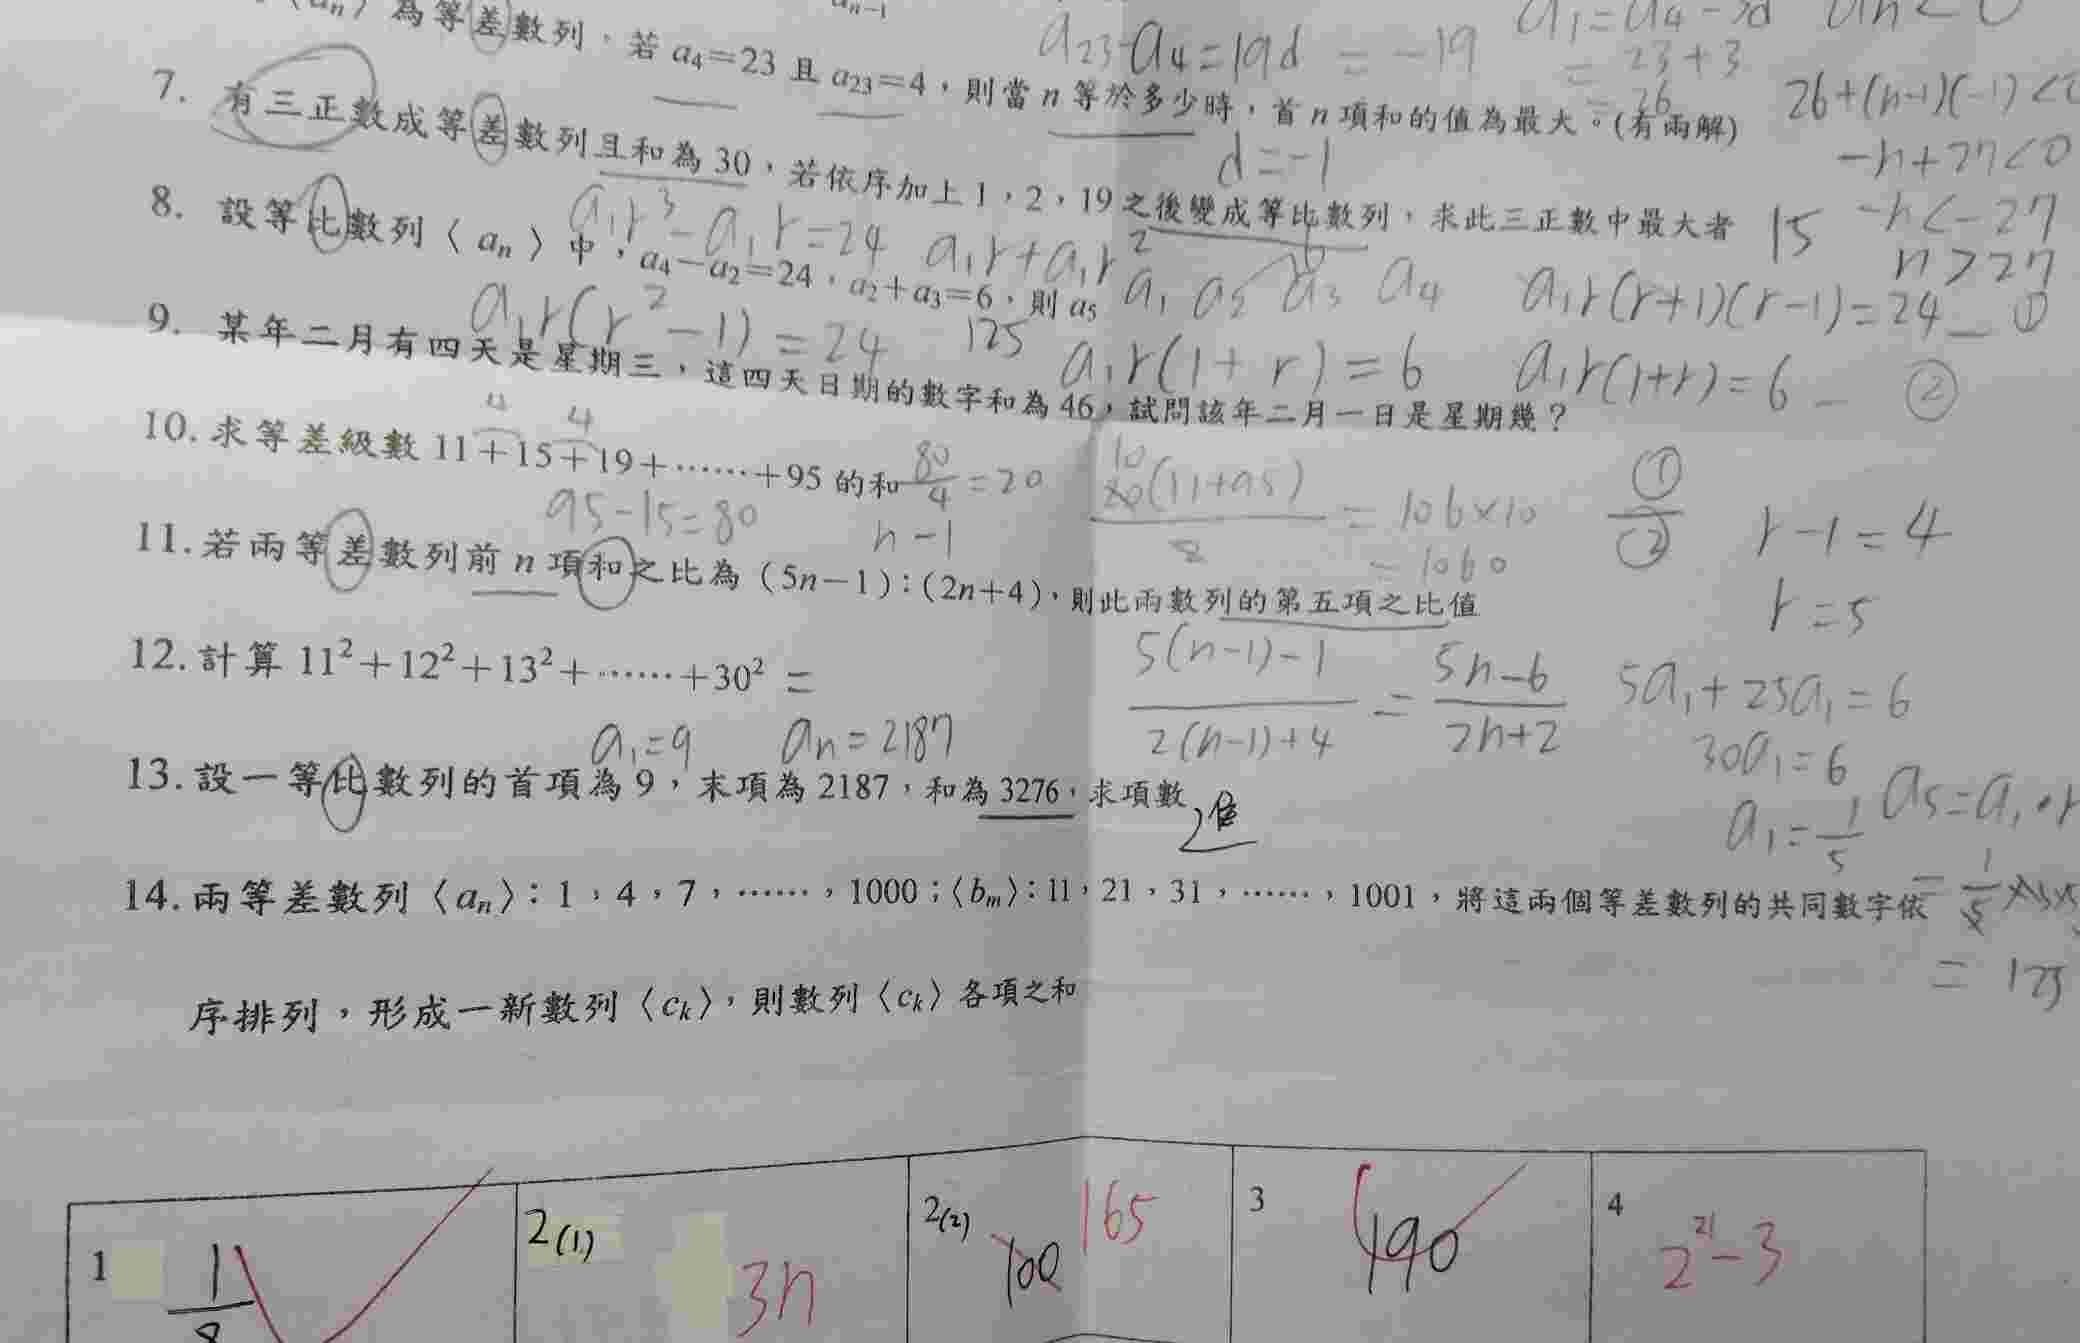 ⟨aₙ⟩ 為等差數列，若 a₄=23 且 a₂₃=4，則當 n 等於多少時，首 n 項和的值為最大。(有兩解)
aₙ₋₁
a₂₃-a₄=19d = -19
d=-1
a₁=a₄-3d
= 23+3
= 26
aₙ<0
26+(n-1)(-1)<0
-n+27<0
-n<-27
n>27
7. 有三正數成等差數列且和為 30，若依序加上 1，2，19 之後變成等比數列，求此三正數中最大者
15
8. 設等比數列 ⟨ aₙ ⟩ 中，a₄-a₂=24，a₂+a₃=6，則 a₅
a₁r³-a₁r=24
a₁r+a₁r²
a₁ a₂ a₃ a₄
a₁r(r+1)(r-1)=24 — ①
a₁r(r²-1)=24
125
a₁r(1+r)=6
a₁r(1+r)=6 — ②
9. 某年二月有四天是星期三，這四天日期的數字和為 46，試問該年二月一日是星期幾？
4
10. 求等差級數 11+15+19+……+95 的和
80/4=20
95-15=80
n-1
(11+95)
= 106×10
= 1060
①/②
r-1=4
r=5
11. 若兩等差數列前 n 項和之比為（5n-1）:（2n+4），則此兩數列的第五項之比值
5(n-1)-1 / 2(n-1)+4 = 5n-6 / 2n+2
5a₁+25a₁=6
30a₁=6
a₁=1/5
a₅=a₁·r
= 125
12. 計算 11²+12²+13²+……+30² =
a₁=9
aₙ=2187
13. 設一等比數列的首項為 9，末項為 2187，和為 3276，求項數
14. 兩等差數列⟨aₙ⟩：1，4，7，……，1000；⟨bₘ⟩：11，21，31，……，1001，將這兩個等差數列的共同數字依
序排列，形成一新數列⟨cₖ⟩，則數列⟨cₖ⟩各項之和
1
1/8
2(1)
3n
2(2)
100
165
3
190
4
2²¹-3